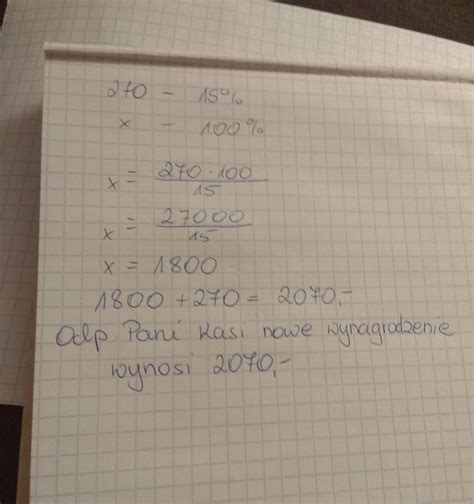 270 - 15%
x - 100%
x = 270 · 100 / 15
x = 27000 / 15
x = 1800
1800 + 270 = 2070,-
Odp. Pani Kasi nowe wynagrodzenie
wynosi 2070,-